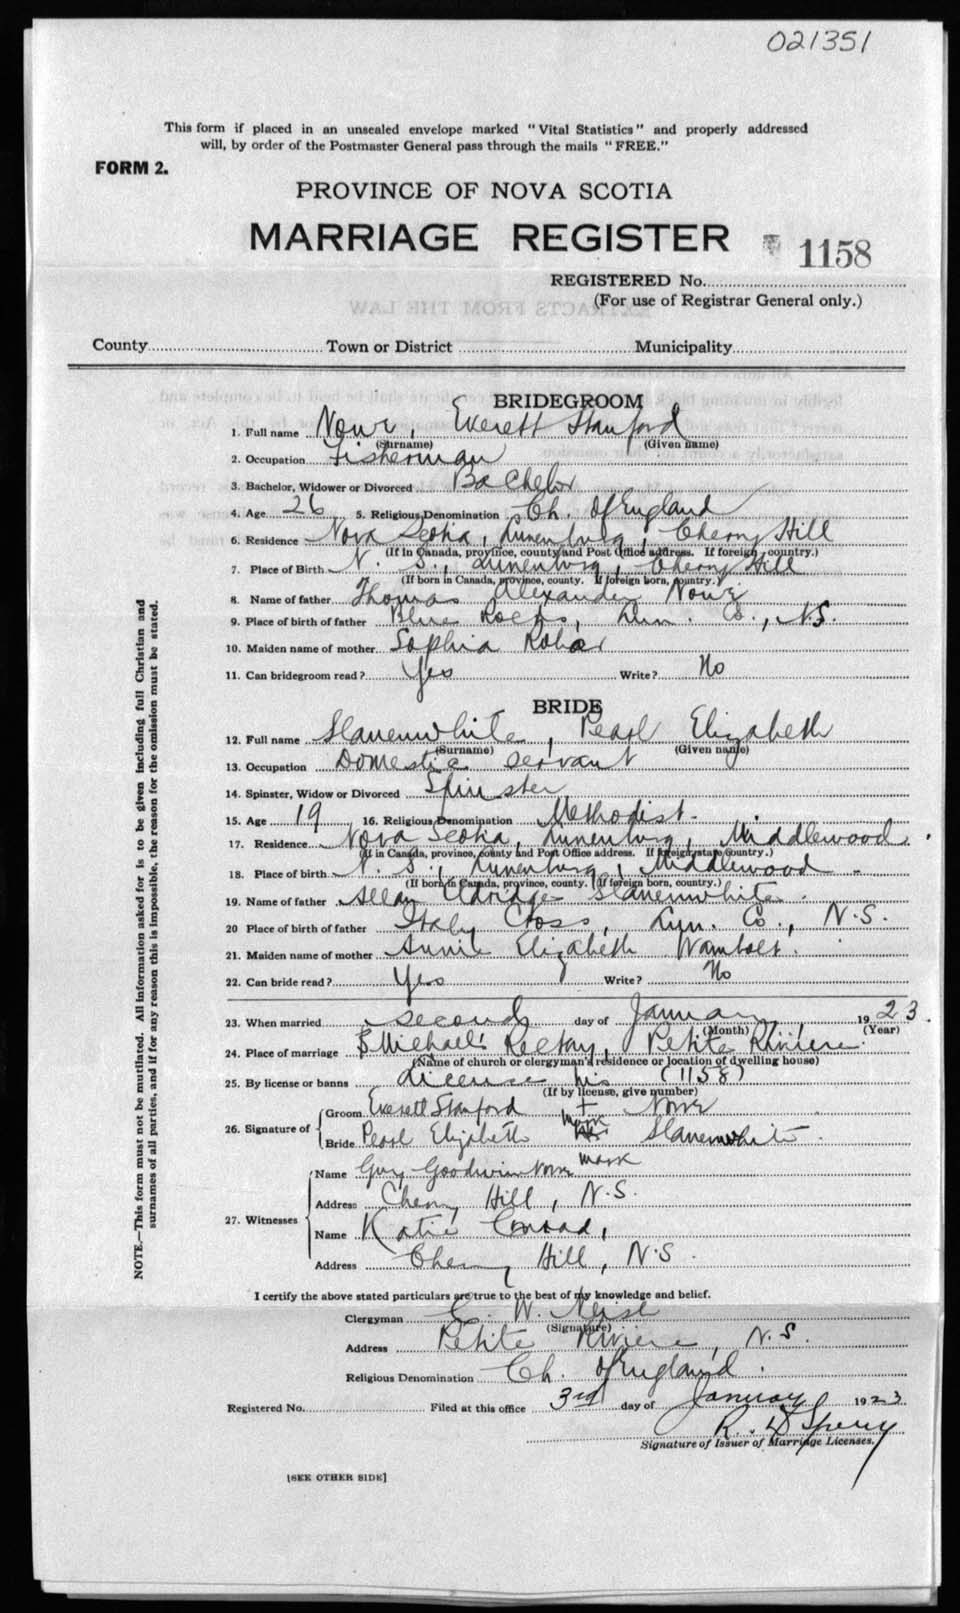 021351
This form if placed in an unsealed envelope marked "Vital Statistics" and properly addressed
will, by order of the Postmaster General pass through the mails "FREE."
FORM 2.
PROVINCE OF NOVA SCOTIA
MARRIAGE REGISTER
1158
REGISTERED No.
(For use of Registrar General only.)
County Town or District Municipality
BRIDEGROOM
1. Full name Nowe, Everett Stanford
(Surname) (Given name)
2. Occupation Fisherman
3. Bachelor, Widower or Divorced Bachelor
4. Age 26 5. Religious Denomination Ch. of England
6. Residence Nova Scotia, Lunenburg, Cherry Hill
(If in Canada, province, county and Post Office address. If foreign, country.)
7. Place of Birth N. S., Lunenburg, Cherry Hill
(If born in Canada, province, county. If foreign born, country.)
8. Name of father Thomas Alexander Nowe
9. Place of birth of father Blue Rocks, Lun. Co., N.S.
10. Maiden name of mother Sophia Robar
11. Can bridegroom read? Yes Write? No
BRIDE
12. Full name Slauenwhite, Pearl Elizabeth
(Surname) (Given name)
13. Occupation Domestic Servant
14. Spinster, Widow or Divorced Spinster
15. Age 19 16. Religious Denomination Methodist.
17. Residence Nova Scotia, Lunenburg, Middlewood.
(If in Canada, province, county and Post Office address. If foreign, state country.)
18. Place of birth N. S., Lunenburg, Middlewood.
(If born in Canada, province, county. If foreign born, country.)
19. Name of father Allan Eldridge Slauenwhite.
20 Place of birth of father Italy Cross, Lun. Co., N.S.
21. Maiden name of mother Annie Elizabeth Wambolt.
22. Can bride read? Yes Write? No
23. When married second day of January, 1923.
(Month) (Year)
24. Place of marriage St Michael's Rectory, Petite Riviere.
(Name of church or clergyman's residence or location of dwelling house)
25. By license or banns License (1158)
(If by license, give number)
his
26. Signature of Groom Everett Stanford + Nowe
mark
Bride Pearl Elizabeth Slauenwhite.
mark
27. Witnesses Name Guy Goodwin Nowe
Address Cherry Hill, N.S.
Name Katie Conrad,
Address Cherry Hill, N.S.
I certify the above stated particulars are true to the best of my knowledge and belief.
Clergyman W.
(Signature)
Address Petite Riviere, N.S.
Religious Denomination Ch. of England.
Registered No. Filed at this office 3rd day of January 1923
R. D Sperry
Signature of Issuer of Marriage Licenses.
[SEE OTHER SIDE]
NOTE.—This form must not be mutilated. All information asked for is to be given including full Christian and
surnames of all parties, and if for any reason this is impossible, the reason for the omission must be stated.